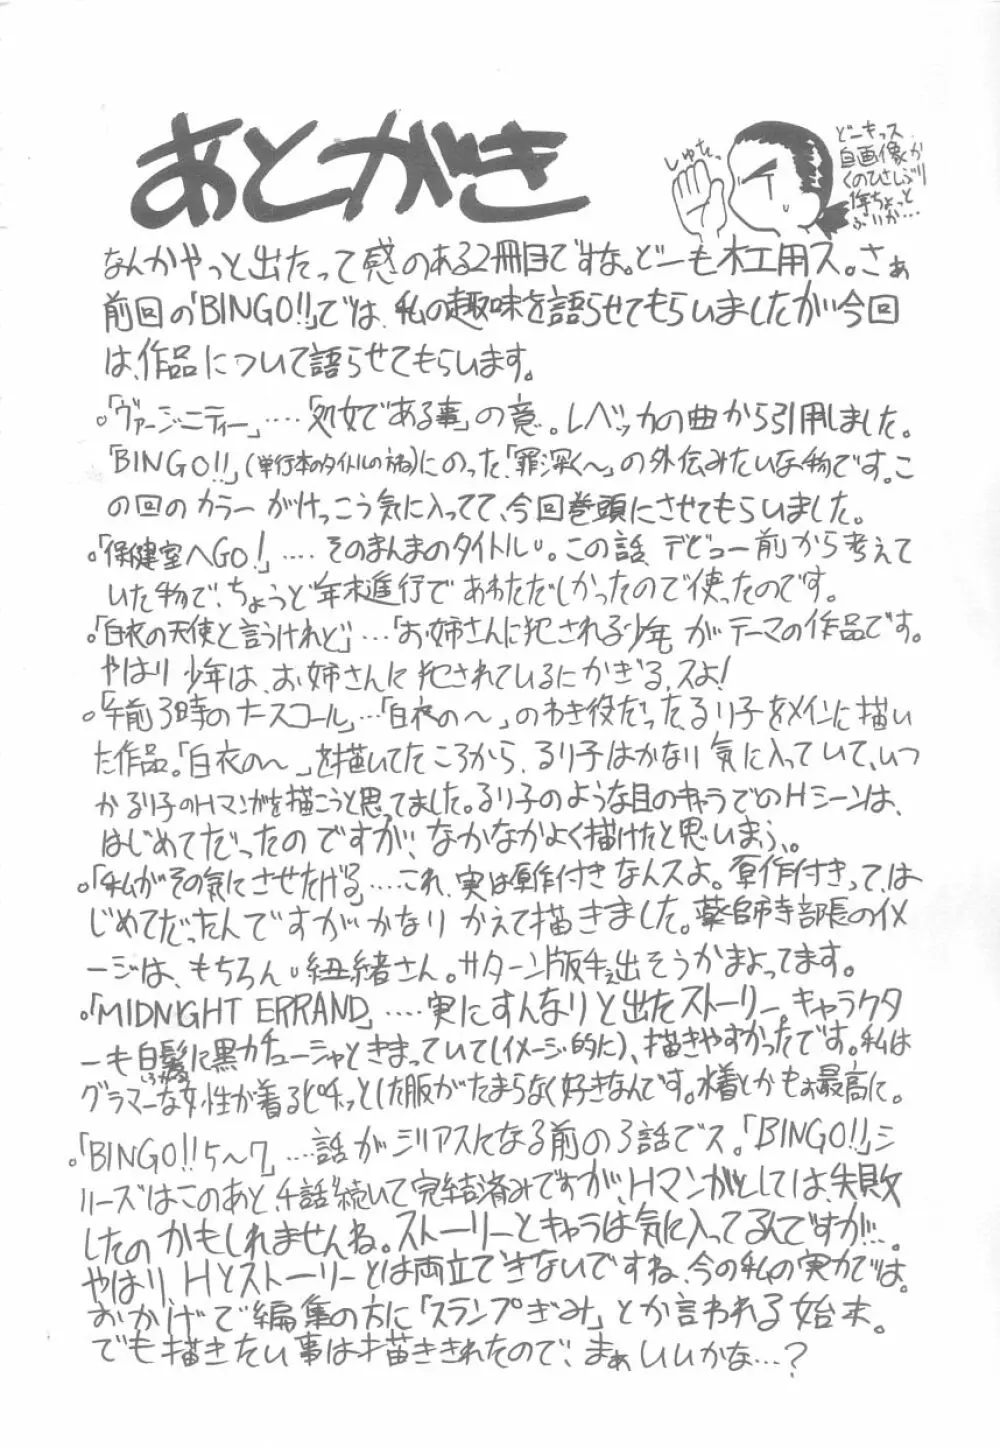 あとがき
しゅたっ
どーもっス
自画像か
くのひさしぶり
なんかやっと出たって感のある2冊目ですな。どーも木工用ス。さぁ
前回の「BINGO!!」では、私の趣味を語らせてもらいましたが今回
は、作品について語らせてもらいます。
。「ヴァージニティー」‥‥「処女である事」の意。レベッカの曲から引用しました。
「BINGO!!」(単行本のタイトルの方ね)にのった「罪深く～」の外伝みたいな物です。こ
の回のカラーがけっこう気に入ってて、今回巻頭にさせてもらいました。
。「保健室へGO!」‥‥そのまんまのタイトル。この話、デビュー前から考えて
いた物で、ちょうど年末進行であわただしかったので使ったのです。
。「白衣の天使と言うけれど」…「お姉さんに犯される少年」がテーマの作品です。
やはり少年は、お姉さんに犯されているにかぎる、スよ!
。「午前3時のナースコール」…「白衣の～」のわき役だった、るり子をメインに描い
た作品。「白衣の～」を描いてたころから、るり子はかなり気に入っていて、いつ
かるり子のHマンガを描こうと思てました。るり子のような目のキャラでのHシーンは、
はじめてだったのですが、なかなかよく描けたと思いまふ。
。「私がその気にさせたげる」‥‥これ、実は原作付きなんスよ。原作付きっては、は
じめてだったんですがかなりかえて描きました。薬師寺部長のイメ
ージは、もちろん紐緒さん。サターン版手ぇ出そうかまよってます。
。「MIDNIGHT ERRAND」‥‥実にすんなりと出たストーリー。キャラクタ
ーも白髪に黒カチューシャときまっていて(イメージ的に)、描きやすかったです。私は
グラマーな女性が着るピチッとした服がたまらなく好きなんです。水着とかもぉ最高に。
。「BINGO!!5～7」‥‥話がシリアスになる前の3話でス。「BINGO!!」シ
リーズはこのあと、4話続いて完結済みですが、Hマンガとしては、失敗
したのかもしれませんね。ストーリーとキャラは気に入ってるんですが…。
やはり、Hとストーリーとは両立できないですね、今の私の実力では。
おかげで編集の方に「スランプぎみ」とか言われる始末。
でも描きたい事は描ききれたので、まぁいいかな…?